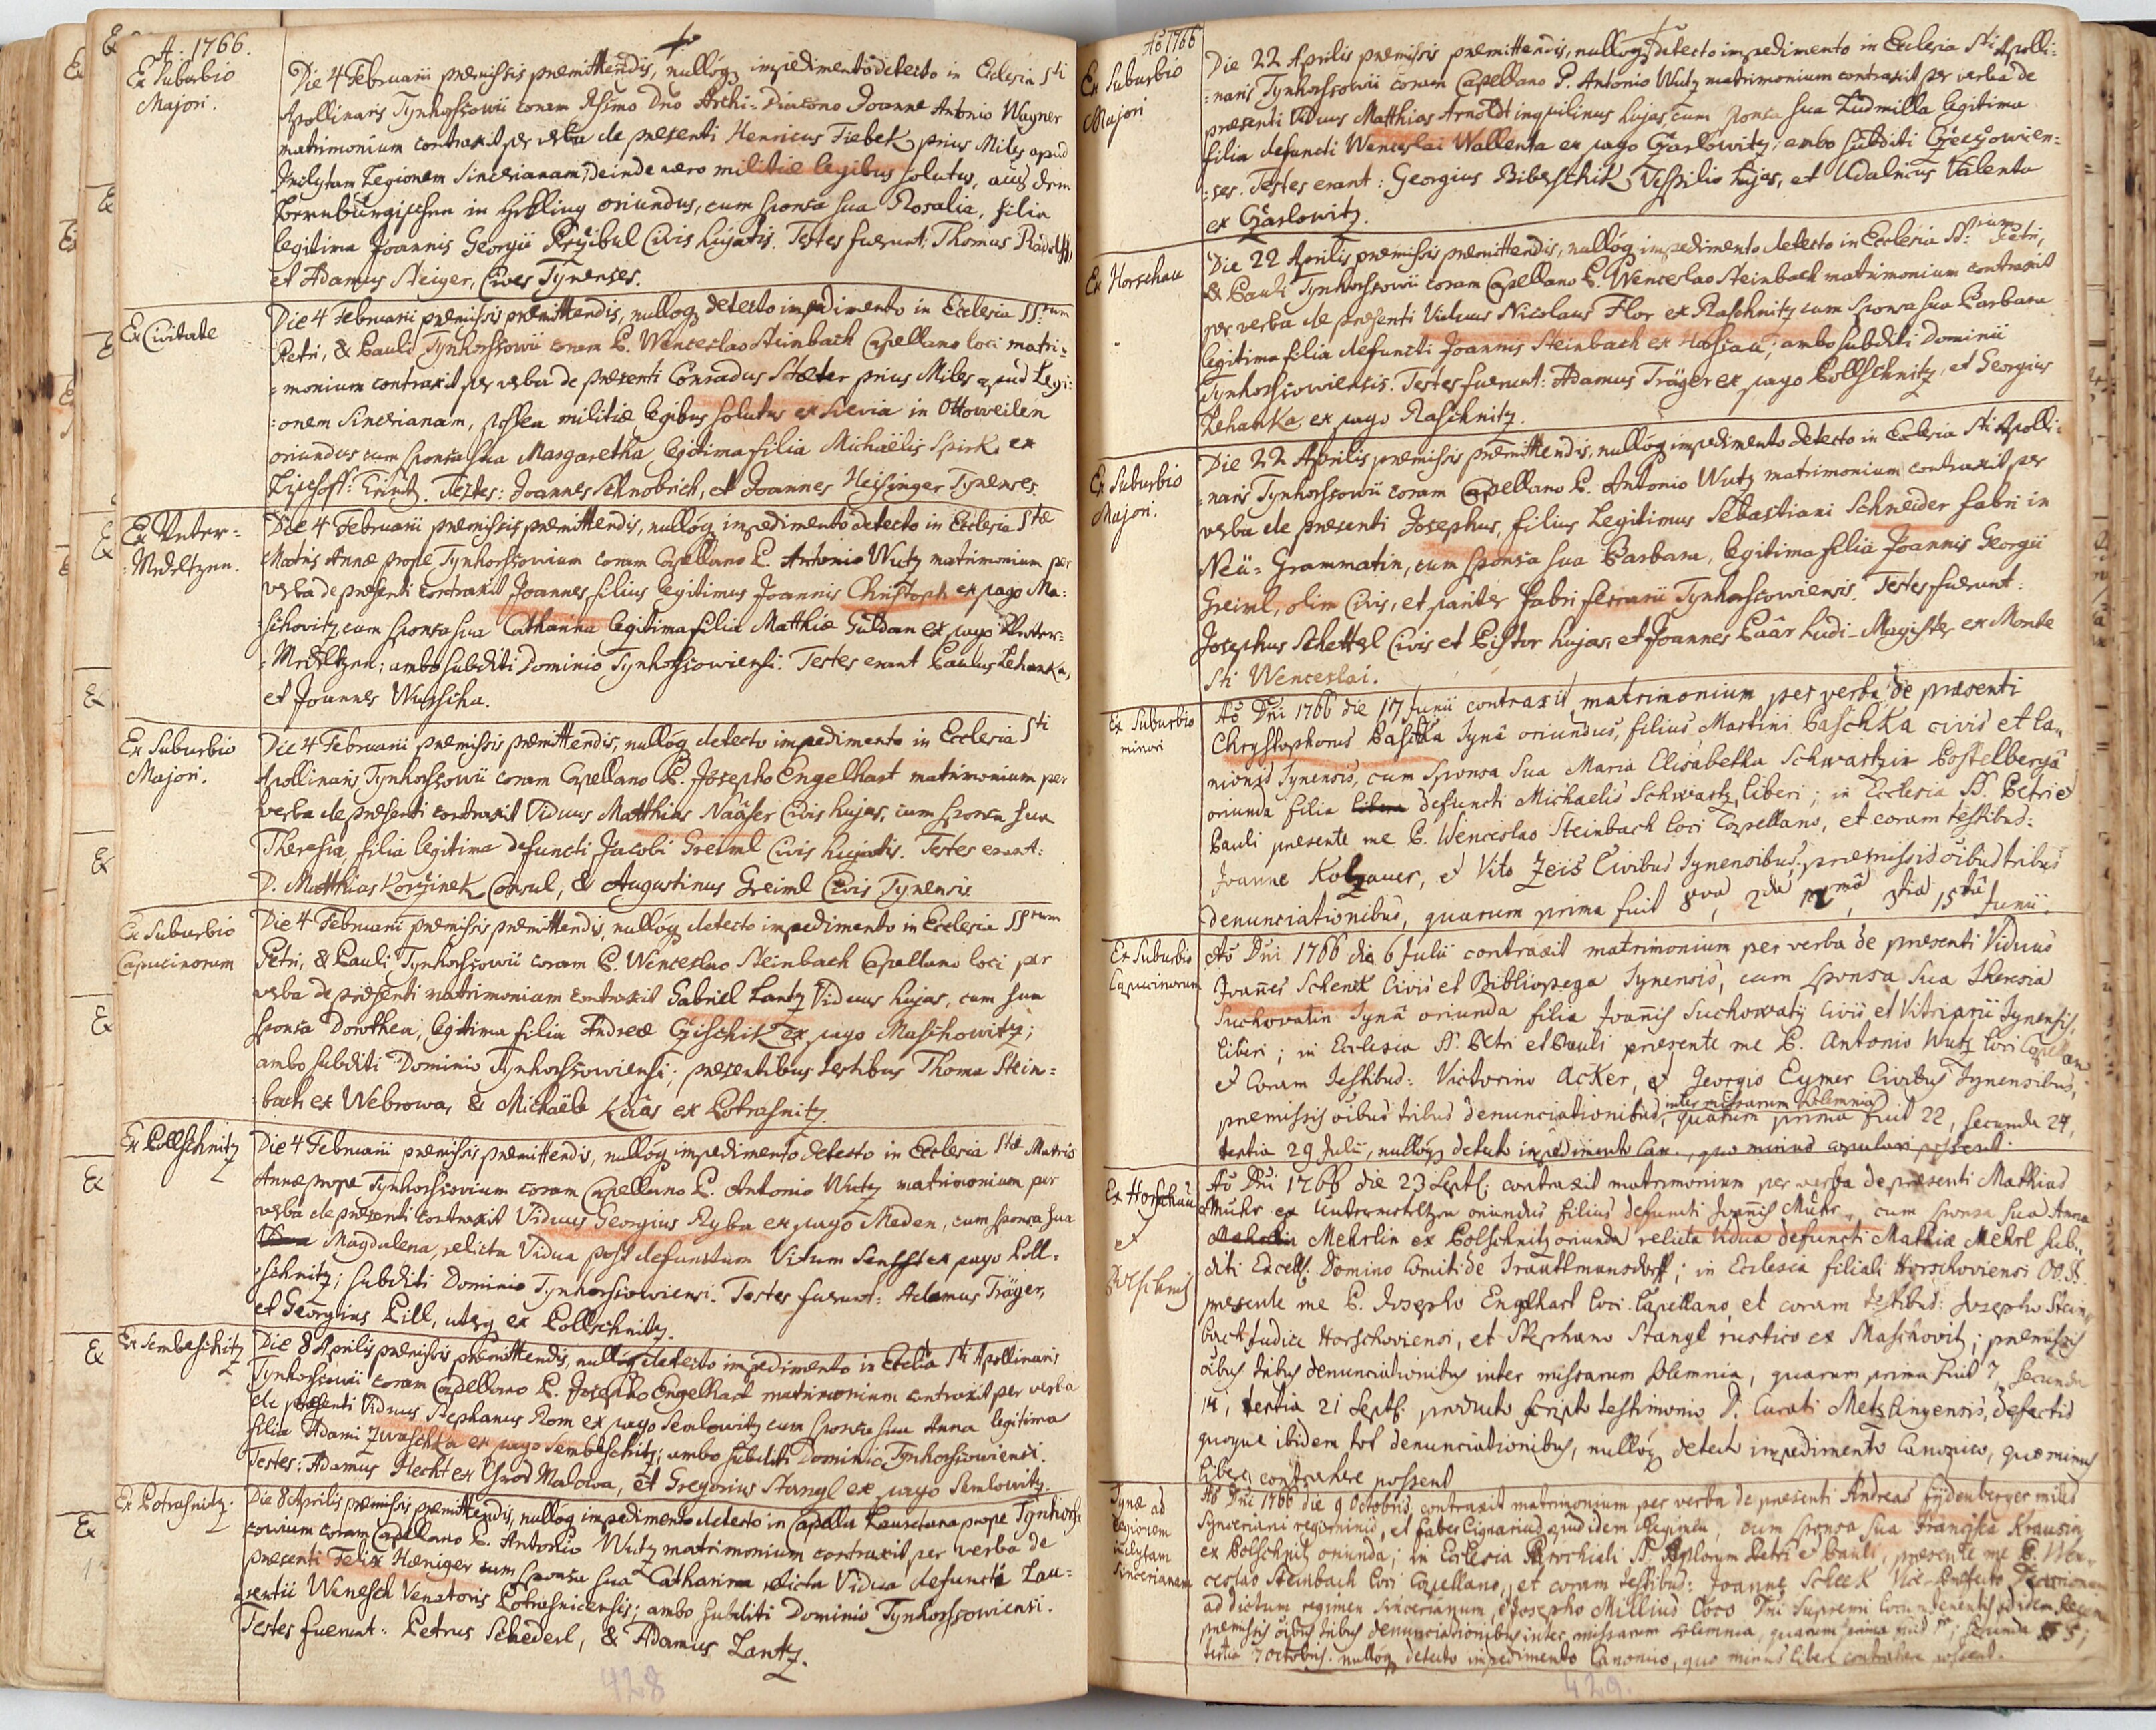 A: 1766.
Ex Suburbio
Majori.
Die 4 Februarii præmissis præmittendis, nullóq impedimento detecto in Eclesia Sti
Apollinaris Tynhorssowii coram Dno Archi-Diacono Joanne Antonio Wagner
matrimonium contraxit per verba de præsenti Henricus Fiebek prius Miles apud
Inclytam Legionem Sincerianam, deinde vero militiæ legibus solutus, aus dem
Bernburgischen in oriundus, cum sponsa sua Rosalia, filia
legitima Joannis Georgii Přzibul Civis hujatis. Testes fuerunt: Thomas
et Adamus Steiger, Cives Tynenses.
Ex Civitate
Die 4 Februarii præmissis præmittendis, nullóq detecto impedimento in Ecclesia SS:rum
Petri, & Pauli Tynhorssowii coram P. Wenceslao Steinbach Capellano loci matri=
=monium contraxit per verba de præsenti Conradus Stæter prius Miles apud Legi=
=onem Sincerianam, postea militiæ legibus solutus ex Suevia in Ottoweilen
oriundus cum sponsa sua Margaretha legitima filia Michaëlis Spirk ex
Testes: Joannes Schnobrich, et Joannes Heisinger Tynenses.
Ex Unter=
=Medeltzen.
Die 4 Februarii præmissis præmittendis, nullóq impedimento detecto in Ecclesia Stæ
Matris Annæ prope Tynhorssowium coram Capellano P. Antonio Wutz matrimonium per
verba de præsenti contraxit Joannes, filius legitimus Joannis Christoph ex pago Ma=
=schovitz cum sponsa sua Catharina legitima filia Matthiæ Guldan ex pago Unter=
=Medeltzen; ambo subditi Dominio Tynhorssowiensi. Testes erant Paulus Zehanka,
et Joannes Wurscha.
Ex Suburbio
Majori.
Die 4 Februarii præmissis præmittendis, nullóq detecto impedimento in Ecclesia Sti
Apollinaris Tynhorssowii coram Capellano P. Josepho Engelhart matrimonium per
verba de præsenti contraxit Viduus Matthias Naaser Civis hujas, cum sponsa sua
Theresia, filia legitima defuncti Jacobi Greiml Civis hujatis. Testes erant:
D. Matthias Kořzinek Consul, & Augustinus Greiml Civis Tynensis.
Ex Suburbio
Capucinorum
Die 4 Februarii præmissis præmittendis, nullóq detecto impedimento in Ecclesia SSrum
Petri, & Pauli Tynhorssowii coram P. Wenceslao Steinbach Capellano loci per
verba de præsenti matrimonium contraxit Gabriel Lantz Viduus hujas, cum sua
sponsa Dorothea, legitima filia Andreæ Czischik ex pago Maschowitz;
ambo subditi Dominio Tynhorssowiensi; præsentibus testibus Thoma Stein=
=bach ex Webrowa, & Michaële Kuâs ex Potrasnitz.
Ex Pollschnitz
Die 4 Februarii præmissis præmittendis, nullóq impedimento detecto in Ecclesia Stæ Matris
Annæ prope Tynhorssovium coram Capellano P. Antonio Wutz matrimonium per
verba de præsenti contraxit Viduus Georgius Ryba ex pago Meden, cum sponsa sua
Magdalena, relicta Vidua post defunctum Vitum Senfft ex pago Poll=
=schnitz; subditi Dominio Tynhorssowiensi. Testes fuerunt: Adamus Träger,
et Georgius Pill, uterq ex Pollschnitz.
Ex Sembeschitz
Die 8 Aprilis præmissis præmittendis, nullóq detecto impedimento in Ecclia Sti Apollinaris
Tynhorssowii coram Capellano P. Josepho Engelhart matrimonium contraxit per verba
de præsenti Viduus Stephanus Rom ex pago Semlowitz cum sponsa sua Anna legitima
filia Adami Zwaschka ex pago Sembschitz; ambo subditi Dominio Tynhorssowiensi.
Testes: Adamus Hecht ex Malowa, et Gregorius Stangl ex pago Semlowitz.
Ex Potrasnitz.
Die 8 Aprilis præmissis præmittendis, nullóq impedimento detecto in Capella Lauretana prope Tynhors=
sowium coram Capellano P. Antonio Wutz matrimonium contraxit per verba de
præsenti Felix Hæniger cum sponsa sua Catharina relicta Vidua defuncti Lau=
=rentii Wenesch Venatoris Potrasnicensis; ambo subditi Dominio Tynhorssowiensi.
Testes fuerunt: Petrus Schederl, & Adamus Lantz.
428
Aõ 1766
Ex Suburbio
Majori
Die 22 Aprilis præmissis præmittendis, nullóq detecto impedimento in Ecclesia Sti Apolli=
=naris Tynhorssowii coram Capellano P. Antonio Wutz matrimonium contraxit per verba de
præsenti Viduus Matthias Arnoldt inquilinus hujas cum sponsa sua Ludmilla legitima
filia defuncti Wenceslai Wallenta ex pago Czarlowitz; ambo subditi
=ses. Testes erant: Georgius Biberschik Vespilio hujas, et Udalricus Valenta
ex Czarlowitz.
Ex Horschau
Die 22 Aprilis præmissis præmittendis, nullóq impedimento detecto in Ecclesia SS:rum Petri,
& Pauli Tynhorssowii coram Capellano P. Wenceslao Steinbach matrimonium contraxit
per verba de præsenti Viduus Nicolaus Flor ex Raschnitz cum sponsa sua Barbara
legitima filia defuncti Joannis Steinbach ex Horschau; ambo subditi Dominii
Tynhorssowiensis. Testes fuerunt: Adamus Träger ex pago Pollschnitz, et Georgius
Zehanka ex pago Raschnitz.
Ex Suburbio
Majori.
Die 22 Aprilis præmissis præmittendis, nullóq impedimento detecto in Ecclesia Sti Apolli=
=naris Tynhorssowii coram Capellano P. Antonio Wutz matrimonium contraxit per
verba de præsenti Josephus, filius Legitimus Sebastiani Schneider fabri in
Neü=Grammatin, cum sponsa sua Barbara, legitima filia Joannis Georgii
Greiml, olim Civis, et pariter fabri ferrarii Tynhorssowiensis. Testes fuerunt:
Josephus Schettel Civis et Pistor hujas, et Joannes Paâr Ludi-Magister ex Monte
Sti Wenceslai.
Ex Suburbio
minori
Aõ Dni 1766 die 17 Junii contraxit matrimonium per verba de præsenti
Chrystophorus Paschka Tynâ oriundus, filius Martini Paschka civis et la=
nionis Tynensis, cum Sponsa Sua Maria Elisabetha Schwartzin Postelbergâ
oriunda filia defuncti Michaelis Schwartz, liberi; in Ecclesia SS. Petri et
Pauli præsente me P. Wenceslao Steinbach loci Capellano, et coram testibus:
Joanne Kolzauer, et Vito Zeis Civibus Tynensibus; præmissis oîbus tribus
denunciationibus, quarum prima fuit 8va, 2da , 3tia 15tâ Junii.
Ex Suburbio
Capucinorum
Aõ Dni 1766 die 6 Julii contraxit matrimonium per verba de præsenti Viduus
Joannes Schenk Civis et Bibliopega Tynensis, cum sponsa sua Theresia
Suchowatin Tynâ oriunda filia Joannis Suchowaty civis et Vitriarii Tynensis,
liberi; in Ecclesia SS. Petri et Pauli præsente me P. Antonio Wutz loci Capellano
et Coram Testibus: Victorino Acker, et Georgio Eymer Civibus Tynensibus,
inter missarum solemnia
præmissis oîbus tribus denunciationibus, quarum prima fuit 22, secunda 24,
tertia 29 Julii, nullóq detecto impedimento Can., quo minus copulari possent.
Ex Horschau
et
Polschnitz
Aõ Dni 1766 die 23 Septl: contraxit matrimonium per verba de præsenti Mathias
Muhr ex Untermedeltzen oriundus filius defuncti Joannis Muhr, cum sponsa sua Anna
Mehrlin ex Polschnitz oriunda relicta vidua defuncti Mathiæ Mehrl sub=
diti Excell. Domino Comiti de Trauttmansdorff; in Ecclesia filiali Horschoviensi OO. SS.
præsente me P. Josepho Engelhart loci Capellano, et coram testibus: Josepho Stein=
back Judice Horschoviensi, et Stephano Stangl rustico ex Maschovitz; præmissis
oîbus tribus denunciationibus inter missarum solemnia, quarum prima fuit 7 secunda
14, tertia 21 Septl. producto scripto testimonio D. Curati Metzlingensis, defactis
quoque ibidem tot denunciationibus, nullóq detecto impedimento Canonico, quo minus
libere contrahere possent
Tynæ ad
Legionem
inclytam
Sincerianam
Aõ Dni 1766 die 9 Octobris contraxit matrimonium per verba de præsenti Andreas Fijdenberger miles
Synceriani regiminis, et faber lignarius apud idem Regimen, cum sponsa sua Francisca Krausin
ex Polschnitz oriunda; in Ecclesia Parochiali SS. Aplorum Petri et Pauli, præsente me P. Wen=
ceslao Steinbach loci Capellano, et coram testibus: Joanne Scheck Vice-
ad dictum regimen Sincerianum, et Josepho Millius loco Dni Supremi Locumtenentis ad idem
præmissis oîbus tribus denunciationibus inter missarum solemnia, quarum prima fuit , secunda 5;
tertia 7 Octobris. nullóq detecto impedimento Canonico, quo minus libere contrahere possent.
429.